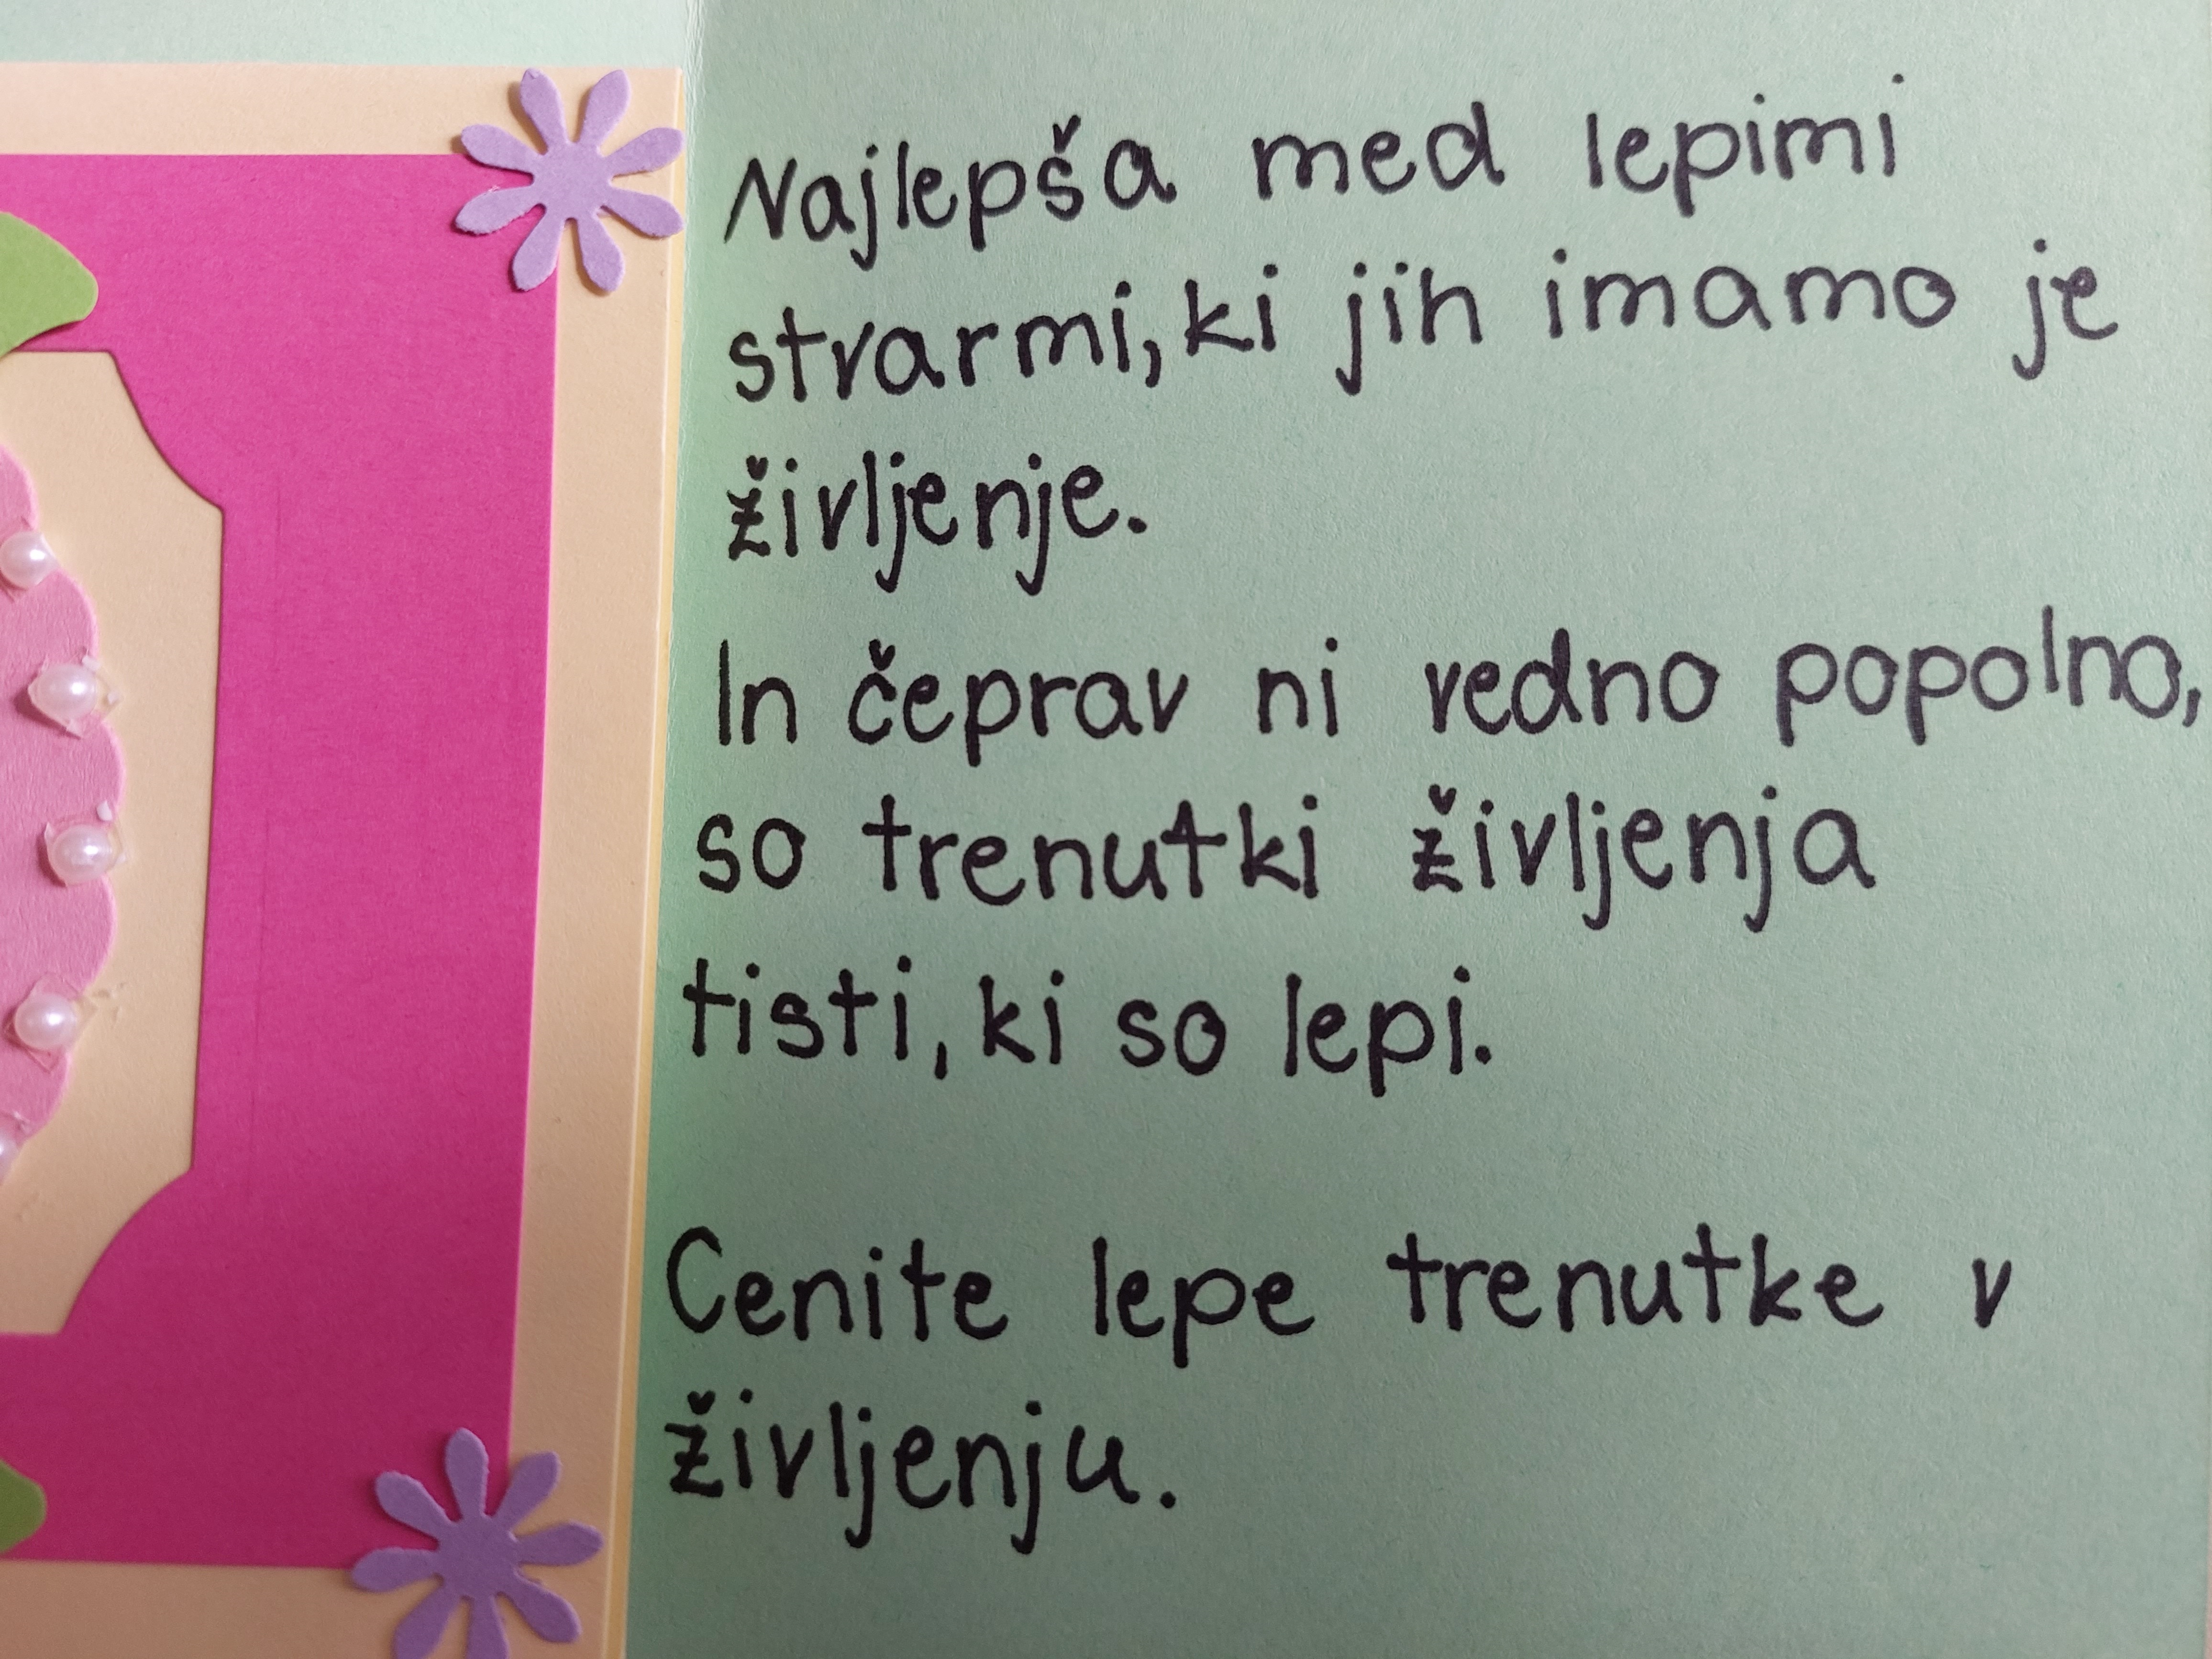 Najlepša med lepimi
strarmi, ki jih imamo je
življenje.
In čeprav ni vedno popolno,
so trenutki življenja
tisti, ki so lepi.
Cenite lepe trenutke v
življenju.